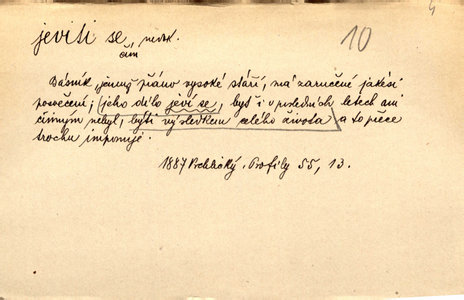 4
jeviti se, nedok.
čím
10
Básník, jemuž přáno vysoké stáří, má zaručené jakési
posvěcení; (jeho dílo jeví se, byť i v posledních letech ani
činným nebyl, býti výsledkem celého života a to přece
trochu imponuje.
1887 Vrchlický. Profily 55, 13.